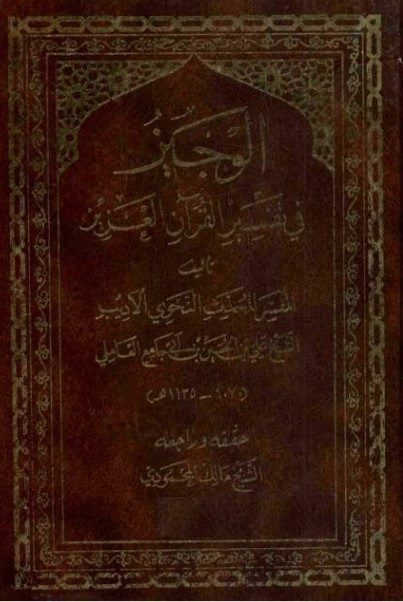 الوجيز
في تفسير القرآن العزيز
تأليف
المفسر المحدث النحوي الأديب
الشيخ علي بن الحسين بن أبي جامع العاملي
(١٠٧٠ - ١١٣٥ هـ)
حققه وراجعه
الشيخ مالك المحمودي